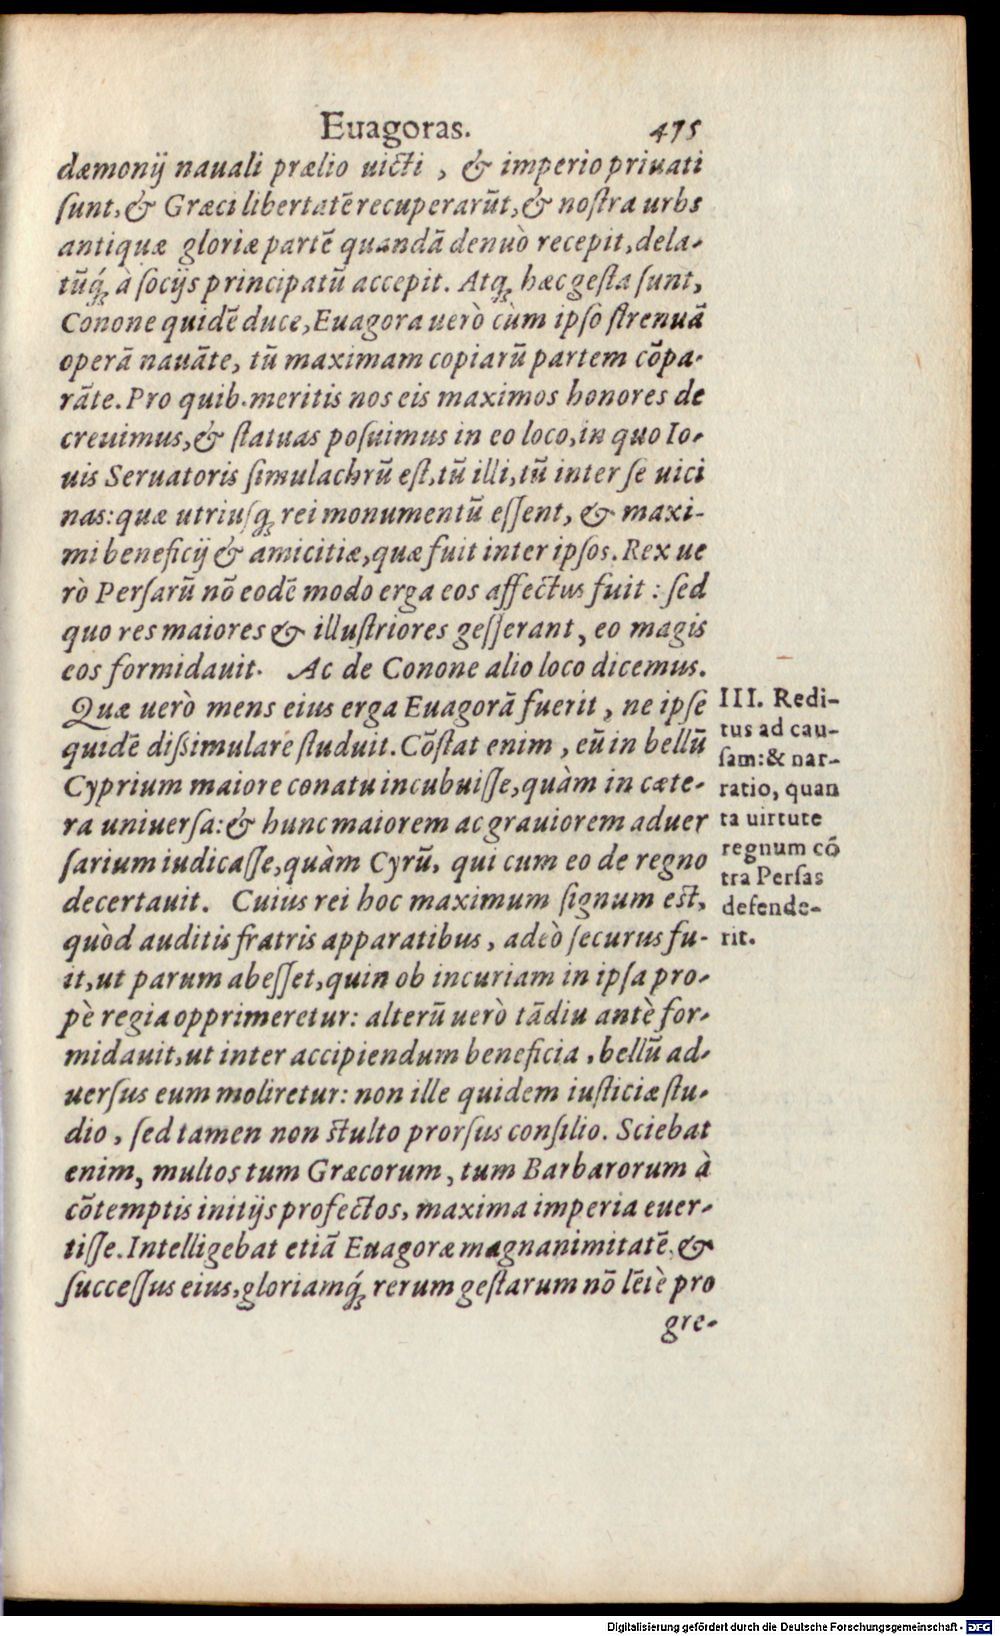 Euagoras. 475
dæmonij nauali prælio uicti, & imperio priuati
ſunt, & Græci libertatē recuperarūt, & noſtra urbs
antiquæ gloriæ partē quandā denuò recepit, dela-
tūq́; à ſocijs principatū accepit. Atq; hæc geſta ſunt,
Conone quidē duce, Euagora uerò cùm ipſo ſtrenuā
operā nauāte, tū maximam copiarū partem cōpa-
rāte. Pro quib. meritis nos eis maximos honores de
creuimus, & ſtatuas poſuimus in eo loco, in quo Io-
uis Seruatoris ſimulachrū eſt, tū illi, tū inter ſe uici
nas: quæ utriuſq; rei monumentū eſſent, & maxi-
mi beneficij & amicitiæ, quæ fuit inter ipſos. Rex ue
rò Perſarū nō eodē modo erga eos affectus fuit: ſed
quo res maiores & illuſtriores geſſerant, eo magis
eos formidauit. Ac de Conone alio loco dicemus.
Quæ uerò mens eius erga Euagorā fuerit, ne ipſe
quidē dißimulare ſtuduit. Cōſtat enim, eū in bellū
Cyprium maiore conatu incubuiſſe, quàm in cæte-
ra uniuerſa: & hunc maiorem ac grauiorem aduer
ſarium iudicaſſe, quàm Cyrū, qui cum eo de regno
decertauit. Cuius rei hoc maximum ſignum eſt,
quòd auditis fratris apparatibus, adeò ſecurus fu-
it, ut parum abeſſet, quin ob incuriam in ipſa pro-
pè regia opprimeretur: alterū uerò tādiu antè for-
midauit, ut inter accipiendum beneficia, bellū ad-
uerſus eum moliretur: non ille quidem iuſticiæ ſtu-
dio, ſed tamen non ſtulto prorſus conſilio. Sciebat
enim, multos tum Græcorum, tum Barbarorum à
cōtemptis initijs profectos, maxima imperia euer-
tiſſe. Intelligebat etiā Euagoræ magnanimitatē, &
ſucceſſus eius, gloriamq́; rerum geſtarum nō lētè pro
gre-
III. Redi-
tus ad cau-
ſam: & nar-
ratio, quan
ta uirtute
regnum cō
tra Perſas
defende-
rit.
Digitalisierung gefördert durch die Deutsche Forschungsgemeinschaft - DFG